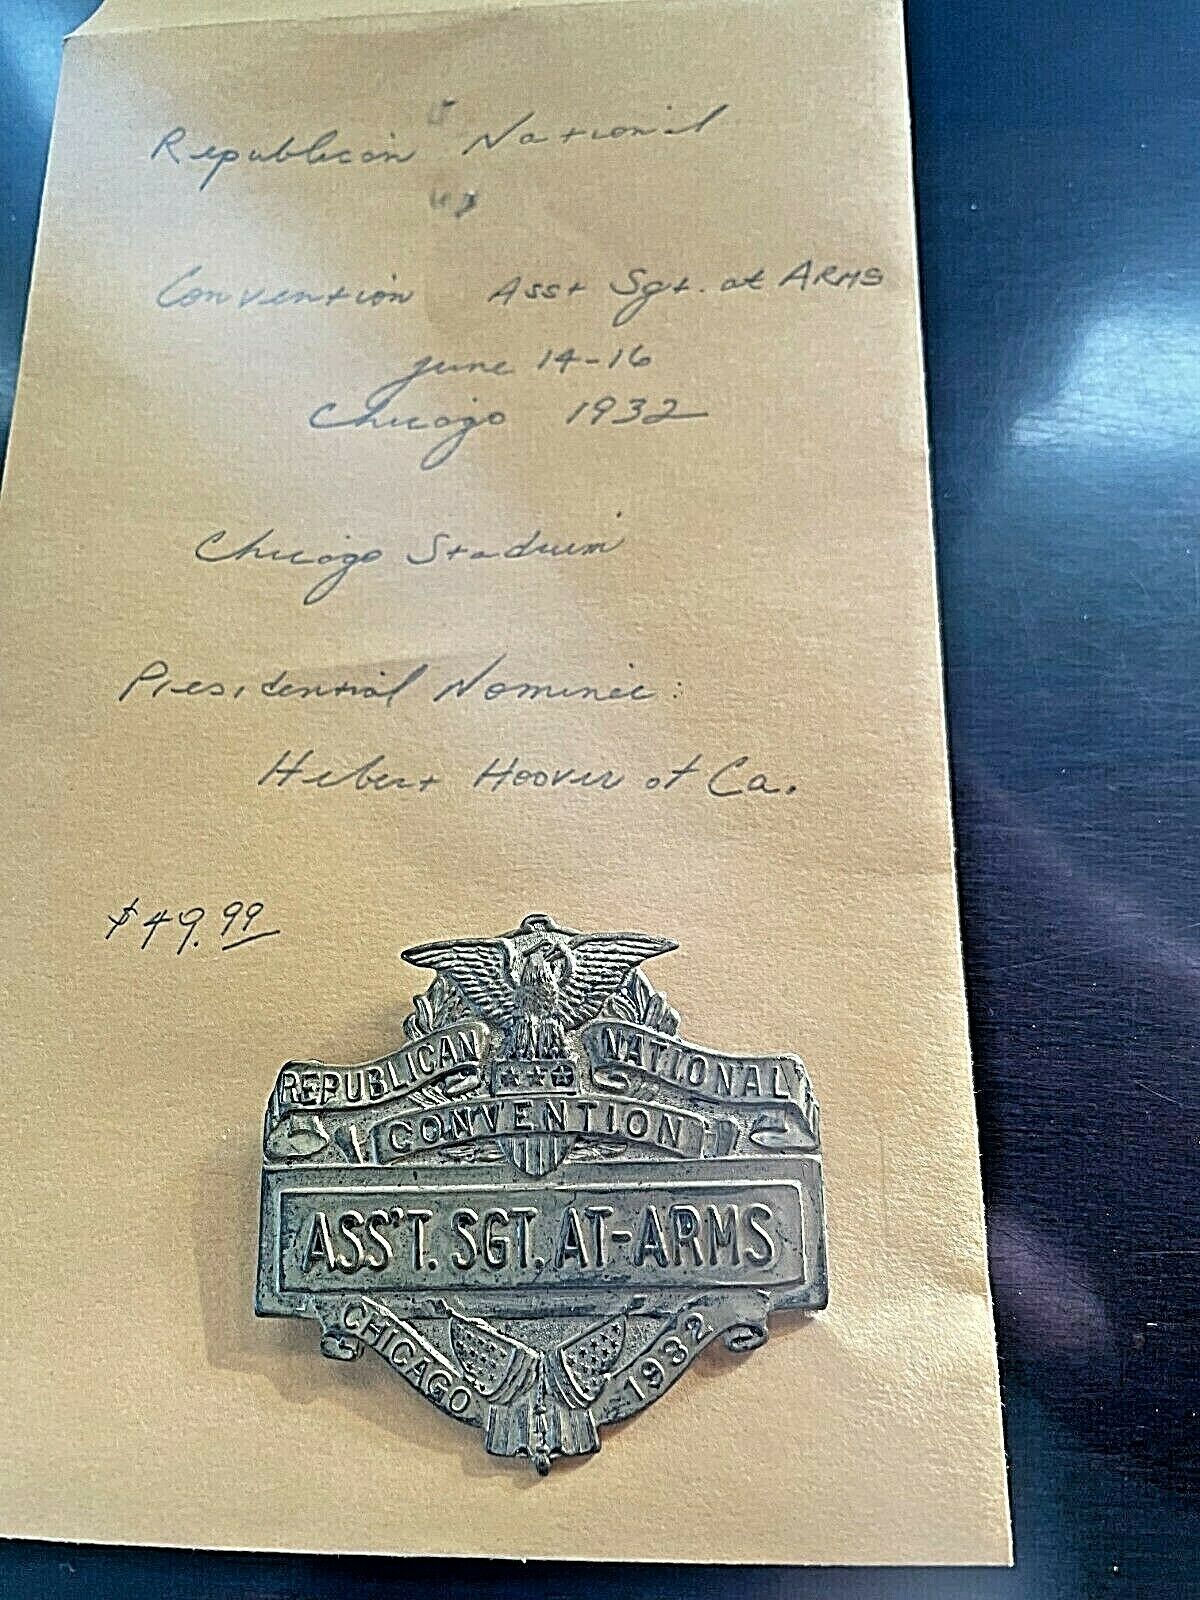 Republican National
Convention Asst Sgt. at ARMS
June 14-16
Chicago 1932
Chicago Stadium
Presidential Nominee:
Hebert Hoover of Ca.
$49.99
REPUBLICAN NATIONAL
CONVENTION
ASS'T. SGT. AT-ARMS
CHICAGO 1932